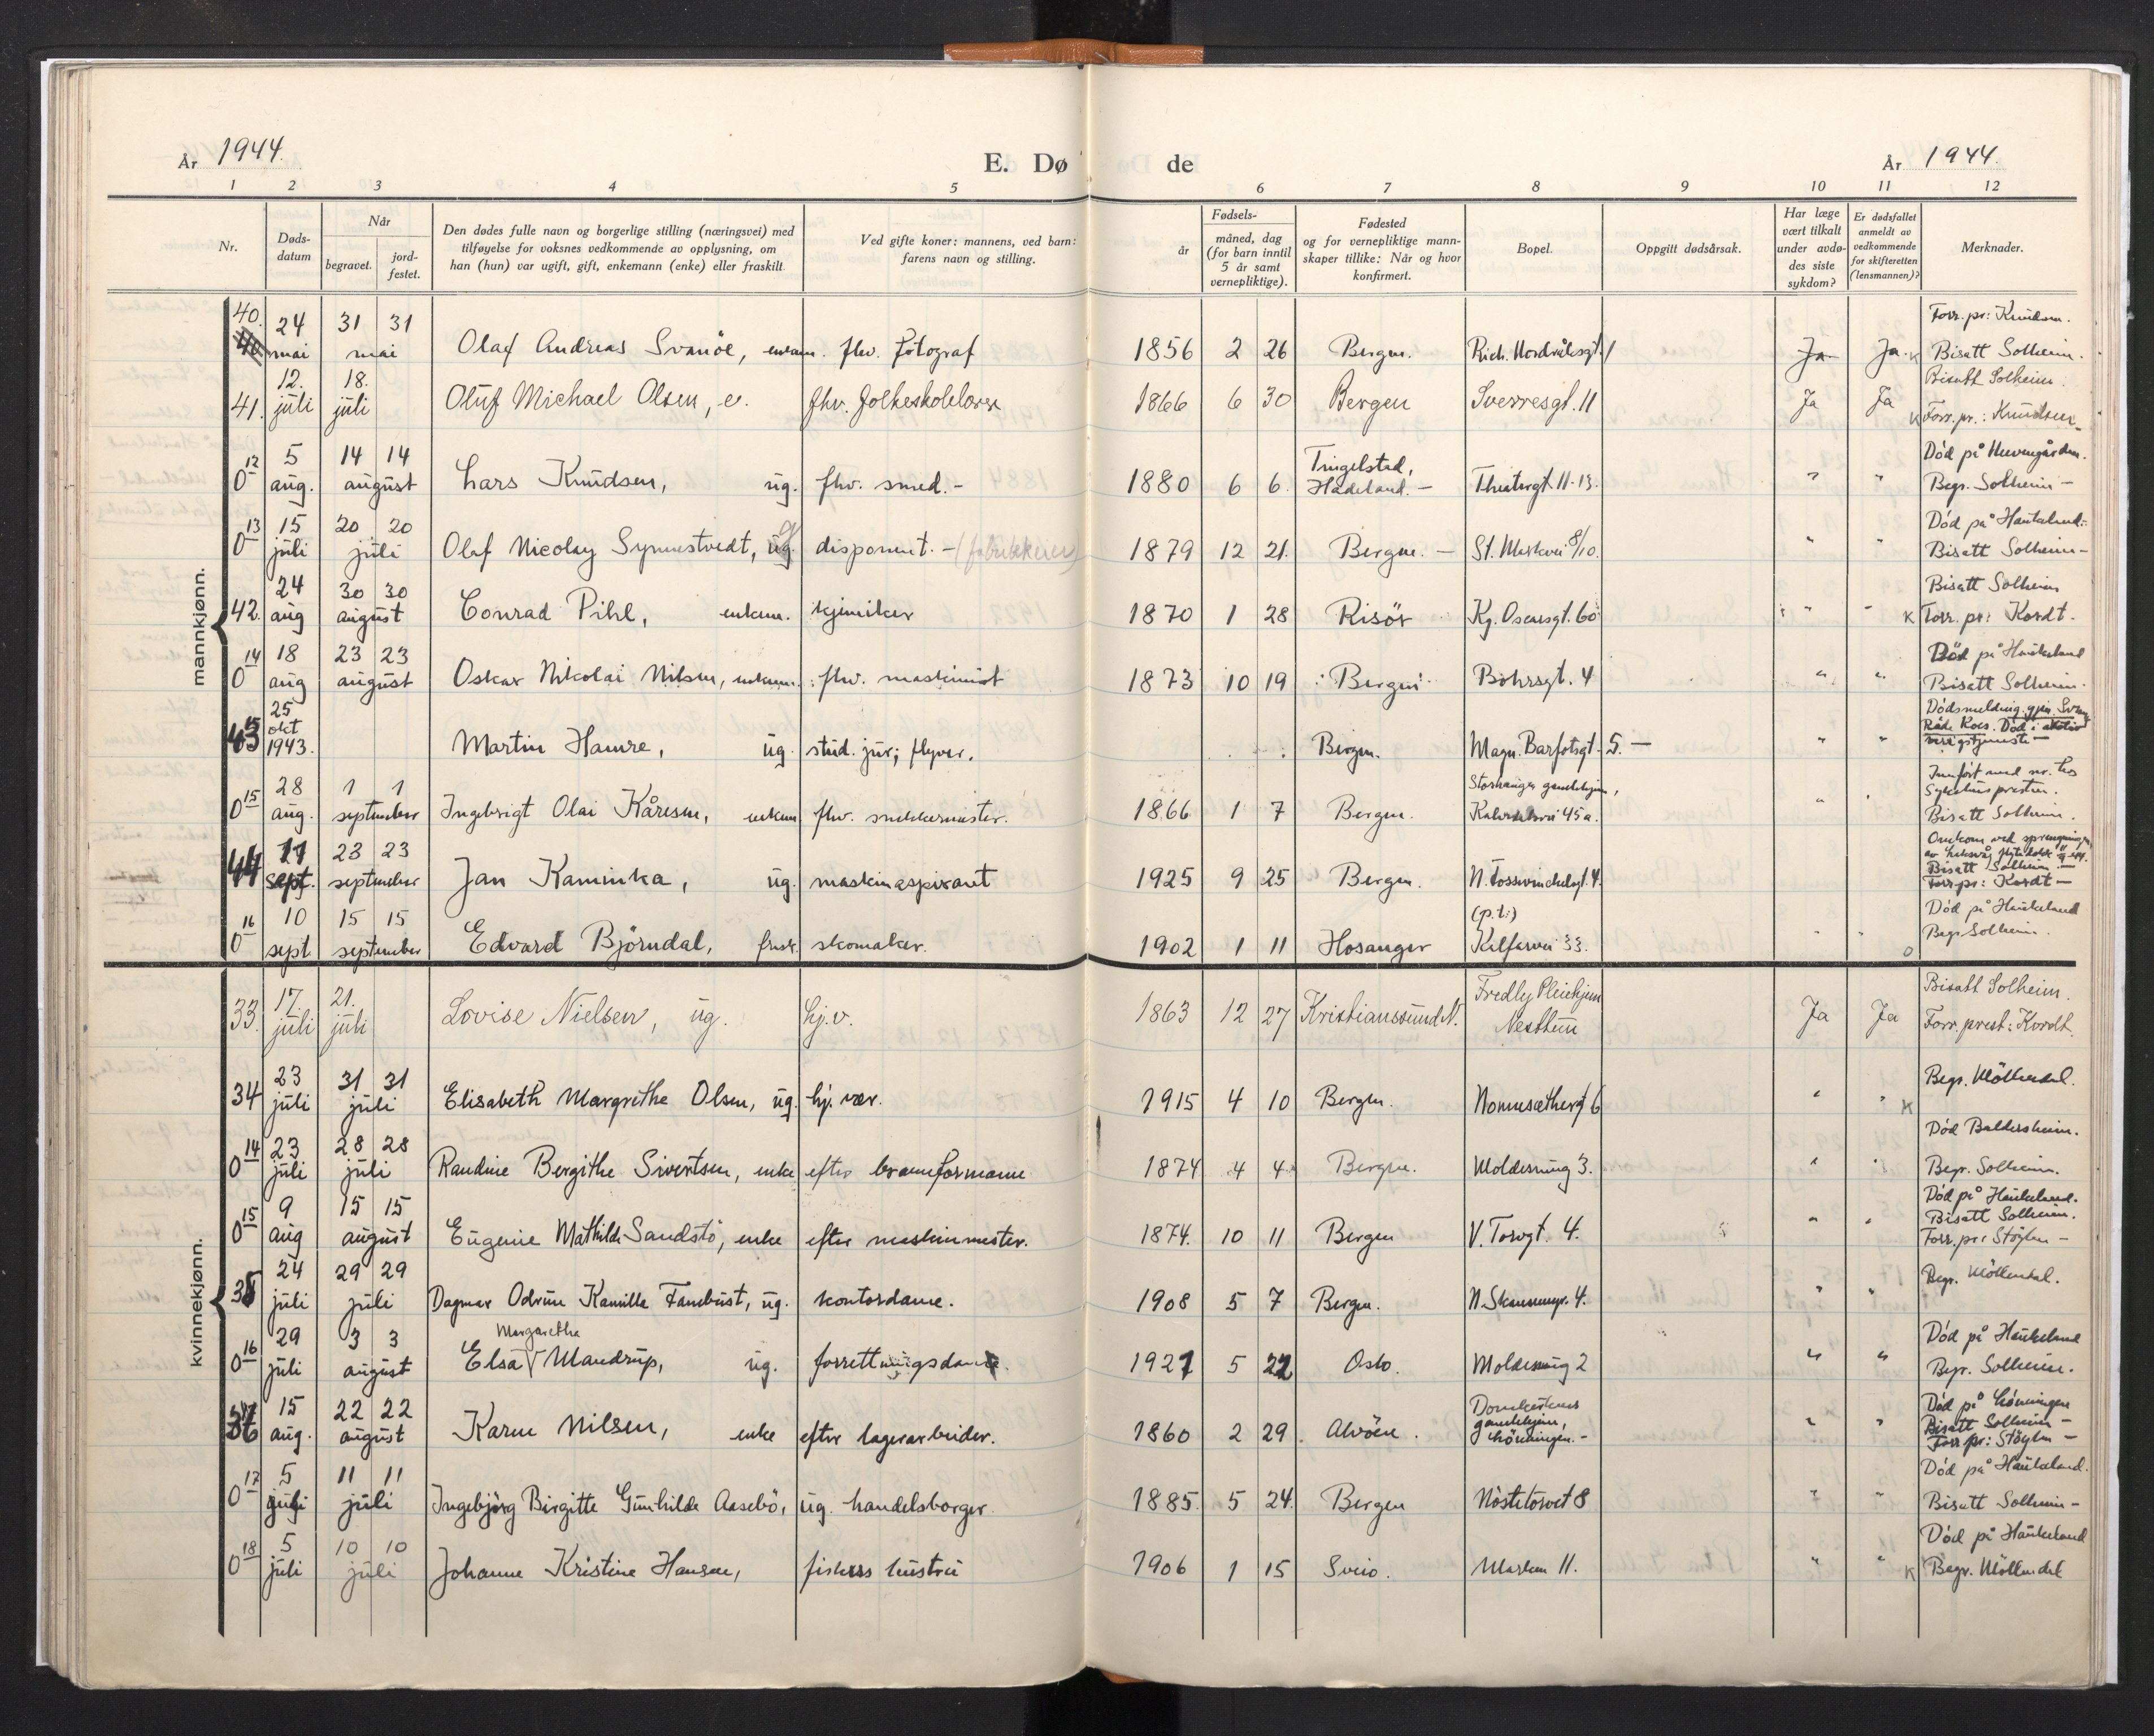 År 1944.
E. Dø de
År 1944.
1 2 3 4 5 6 7 8 9 10 11 12
Nr.
Døds-
datum
Når
begravet.
jord-
festet.
Den dødes fulle navn og borgerlige stilling (næringsvei) med
tilføyelse for voksnes vedkommende av opplysning, om
han (hun) var ugift, gift, enkemann (enke) eller fraskilt.
Ved gifte koner: mannens, ved barn:
farens navn og stilling.
år
Fødsels-
måned, dag
(for barn inntil
5 år samt
vernepliktige).
Fødested
og for vernepliktige mann-
skaper tillike: Når og hvor
konfirmert.
Bopel.
Oppgitt dødsårsak.
Har læge
vært tilkalt
under avdø-
des siste
sykdom?
Er dødsfallet
anmeldt av
vedkommende
for skifteretten
(lensmannen)?
Merknader.
mannkjønn.
40. 24 mai 31 31 mai Olaf Andreas Svanöe, enkem. fhv. fotograf 1856 2 26 Bergen. Rich. Nordråksgt. 1 Ja Ja. K Forr. pr: Knudsen.
Bisatt Solheim.
41. 12. juli 18. juli Oluf Michael Olsen, e. fhv. folkeskolelærer 1866 6 30 Bergen Sverresgt. 11 Ja Ja K Bisatt Solheim.
Forr. pr.: Knudsen.
0 12 5 aug. 14 14 august Lars Knudsen, ug. fhv. smed. - 1880 6 6. Tingelstad,
Hadeland. - Theatergt. 11-13. " " Död på
Begr. Solheim -
0 13 15 juli 20 20 juli Olaf Nicolay Synnestvedt, ug. g disponent. - (fabrikkeier) 1879 12 21. Bergen. - St. Markvei 8/10. " " Död på Haukeland.
Bisatt Solheim -
42. 24 aug 30 30 august Conrad Pihl, enkem. kjemiker 1870 1 28 Risör Kg. Oscarsgt. 60 " " K Bisatt Solheim
Forr. pr: Kordt.
0 14 18 aug 23 23 august Oskar Nikolai Nilsen, enkem. fhv. maskinist 1873 10 19 Bergen Böhrsgt. 4 " " Död på Haukeland
Bisatt Solheim.
43 25 okt 1943. Martin Hamre, ug. stud. jur; flyver. Bergen. Magn. Barfotsgt. 5. - " " Dödsmelding gjen. Svensk
Röde Kors. Död i aktiv
krigstjeneste -
0 15 28 aug. 1 1 september Ingebrigt Olai Kåresen, enkem fhv. snekkermester. 1866 1 7 Bergen. Storhaugen gamlehjem,
Kalvedalsvei 45a. " " Innfört med nr. hos
Sykehuspresten.
Bisatt Solheim.
44 11 sept. 23 23 september Jan Kaminka, ug. maskinaspirant 1925 9 25 Bergen. N. Fosswinckelsgt. 4. Omkom ved sprengningen
av Laksevåg flytedokk 11/9-44.
Bisatt Solheim -
Forr pr: Kordt -
0 16 10 sept 15 15 september Edvard Björndal, frask. skomaker. 1902 1 11 Hosanger (p.t:)
Kalfarvei 33. " " 0 Död på Haukeland
Begr Solheim.
kvinnekjønn.
33. 17. juli 21. juli Lovise Nielsen, ug. hj.v. 1863 12 27 Kristianssund N. Fredly Pleiehjem
Nesttun Ja Ja Bisatt Solheim.
Forr. prest: Kordt.
34 23 juli 31 31 juli Elisabeth Margrethe Olsen, ug. hj. vær. 1915 4 10 Bergen. Nonnesæthergt 6 " " K Begr. Möllendal.
0 14 23 juli 28 28 juli Randine Bergithe Sivertsen, enke efter brannformann 1874 4 4. Bergen. Moldesmug 3. " " Död Baldersheim.
Begr. Solheim.
0 15 9 aug 15 15 august Eugenie Mathilde Sandstö, enke efter maskinmester. 1874. 10 11 Bergen V. Torvgt. 4. " " Död på Haukeland.
Bisatt Solheim.
Forr. pr: Stöylen -
35 24 juli 29 29 juli Dagmar Odrun Kamilla Fanebust, ug. kontordame. 1908 5 7 Bergen. N. Skansemyr. 4. " " Begr. Möllendal.
0 16 29 juli 3 3 august Margaretha
Elsa Mandrup, ug. forrettningsdame. 1921 5 22 Oslo. Moldesmug 2 " " Död på Haukeland
Begr. Solheim.
36 15 aug. 22 22 august Karen Nilsen, enke efter lagerarbeider. 1860 2 29 Alvöen. Domkirkens
gamlehjem,
Löningen. - " " Död på Löningen
Bisatt Solheim -
Forr. pr: Stöylen -
0 17 5 juli 11 11 juli Ingebjörg Birgitte Gunhilde Aasebö, ug. handelsborger. 1885. 5 24. Bergen Nöstetorvet 8 " " Död på Haukeland.
Bisatt Solheim -
0 18 5 juli 10 10 juli Johanne Kristine Hansen, fiskers hustru 1906 1 15 Sveio. Marken 11. " " K Död på Haukeland
Begr. Möllendal